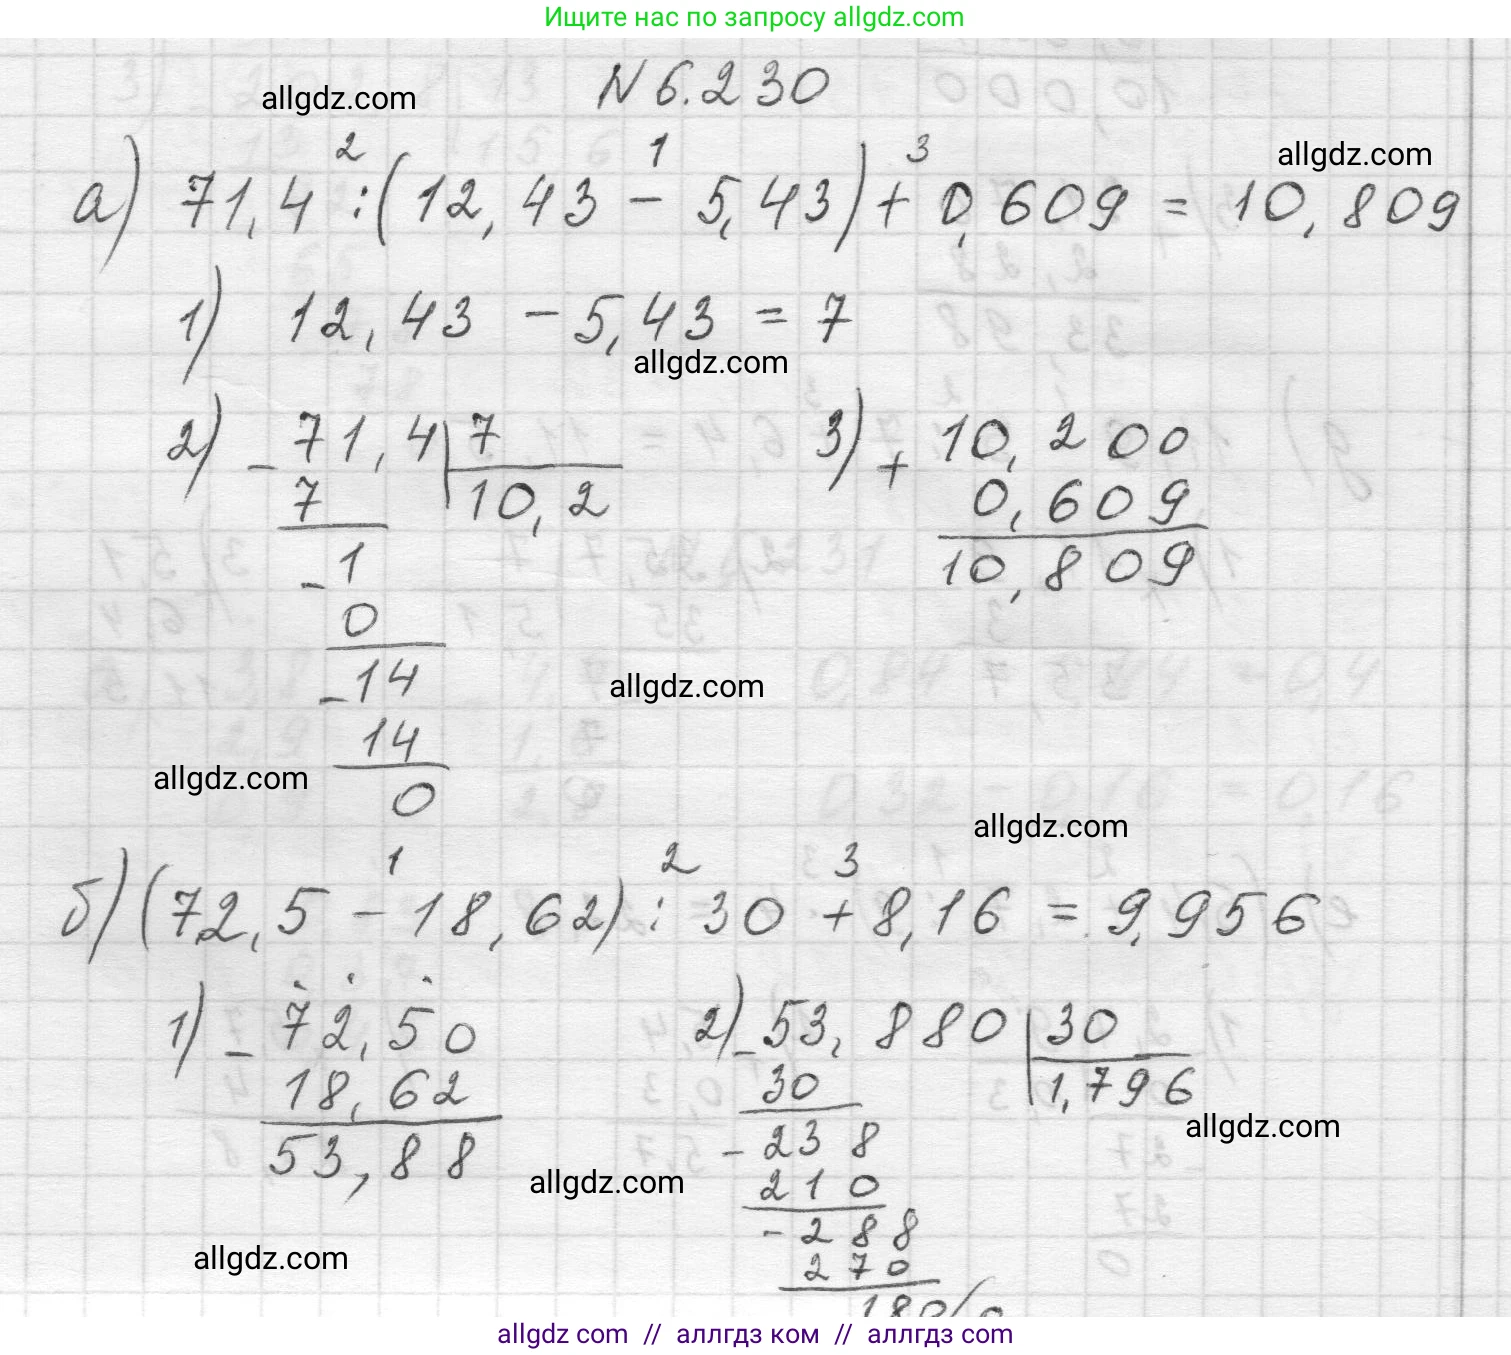 Ищите нас по запросу allgdz.com
N 6.230
allgdz.com
2 1 3
allgdz.com
а) 71,4 : (12,43 - 5,43) + 0,609 = 10,809
1) 12,43 - 5,43 = 7
allgdz.com
2) - 71,4 | 7
7 10,2
- 1
0
- 14
14
0
3) + 10,200
0,609
10,809
allgdz.com
allgdz.com
allgdz.com
1 2 3
б) (72,5 - 18,62) : 30 + 8,16 = 9,956
1) - 72,50
18,62
53,88
2) - 53,880 | 30
30 1,796
- 238
210
- 288
270
180
allgdz.com
allgdz.com
allgdz.com
allgdz com // аллгдз ком // аллгдз com